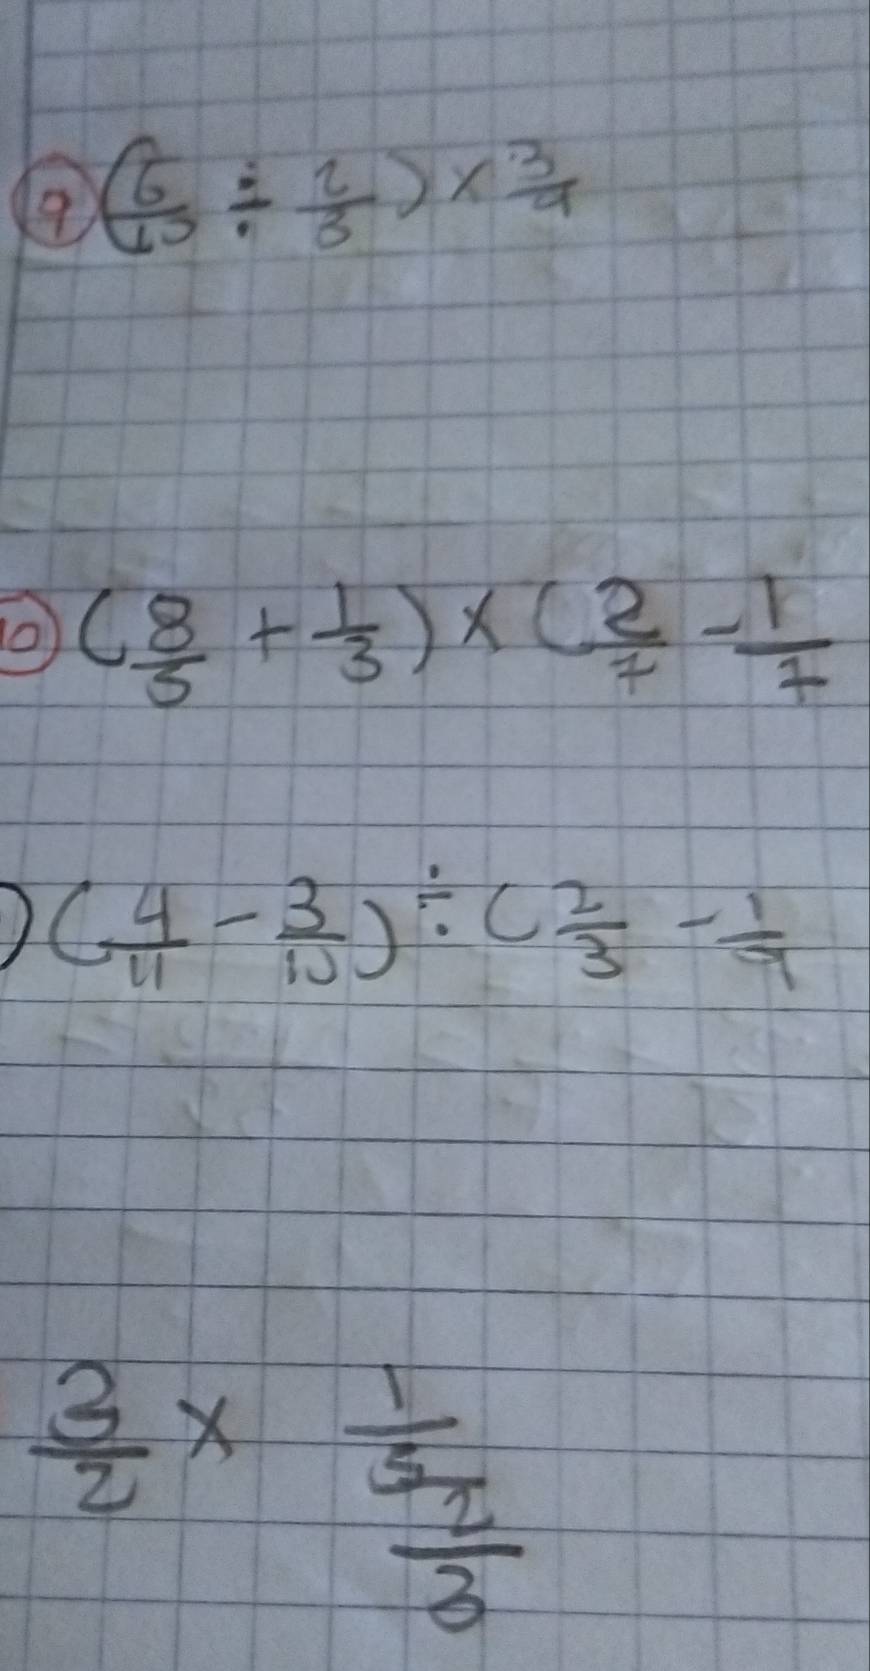 9) (6/15 ÷ 2/3) × 3/4
10) (8/5 + 1/3) × (2/7 - 1/7
) (4/11 - 3/10) ÷ (2/3 - 1/9
3/2 × 1/5
2/3